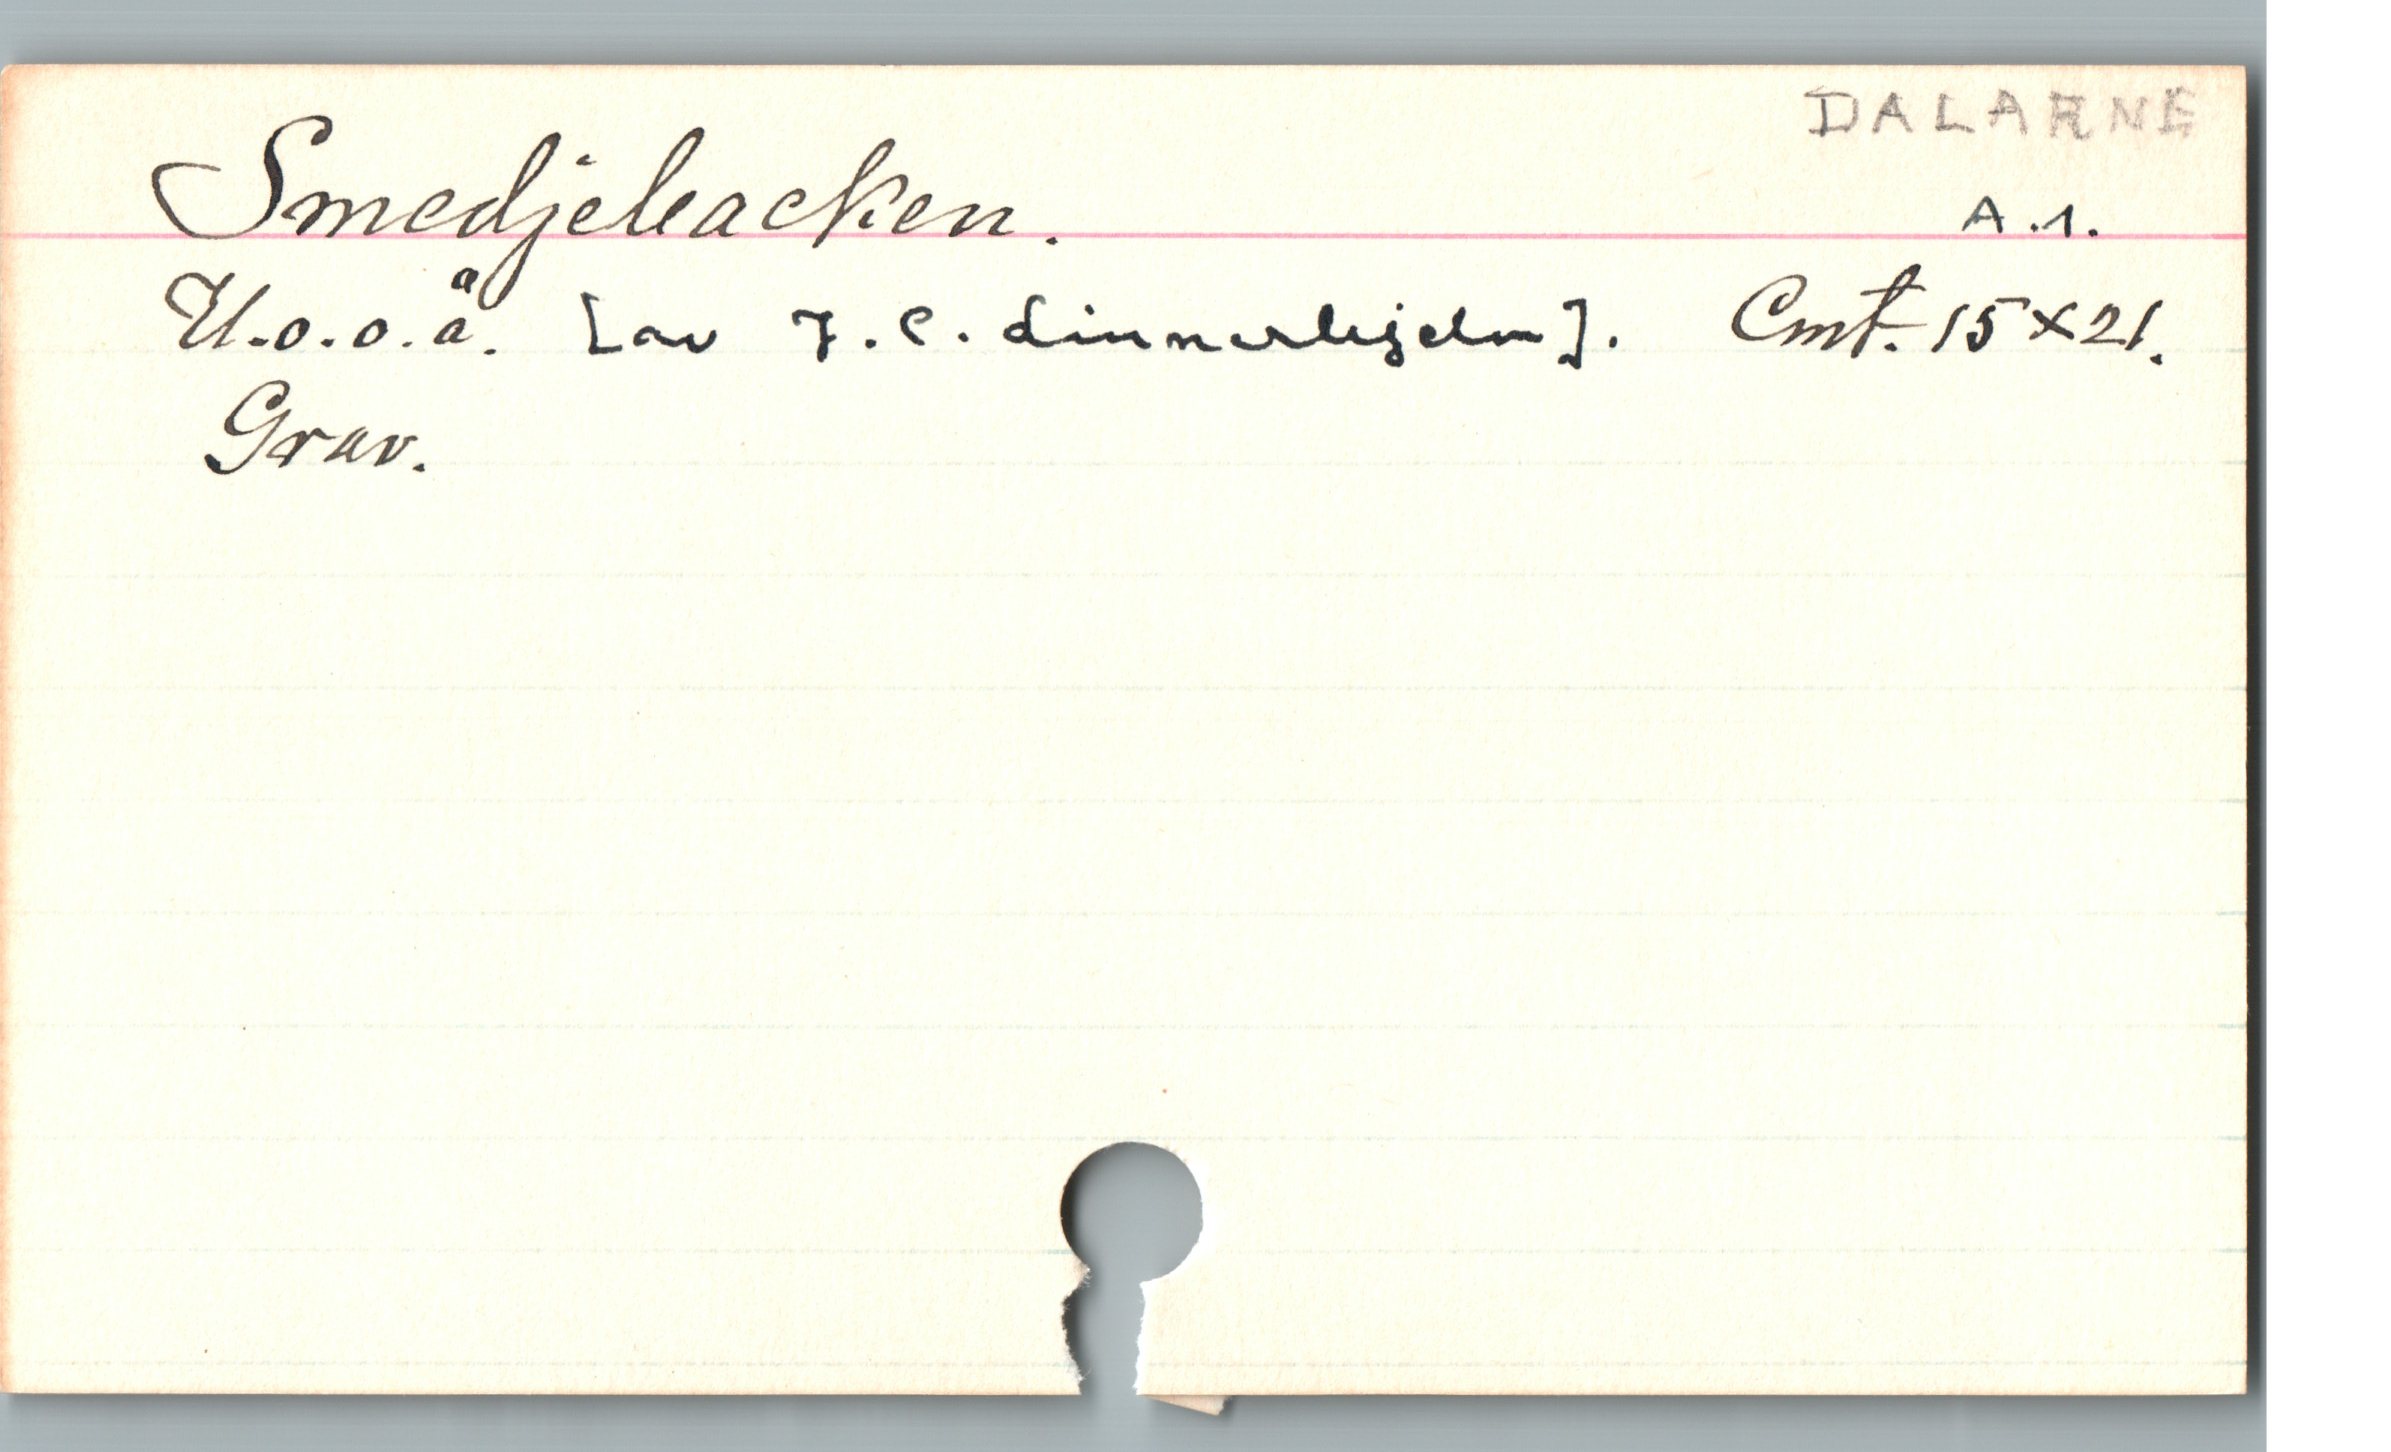 DALARNE
Smedjebacken.
A.1.
U.o.o.å. [av J.C. Linnerhjelm]. Cmt. 15×21.
Grav.